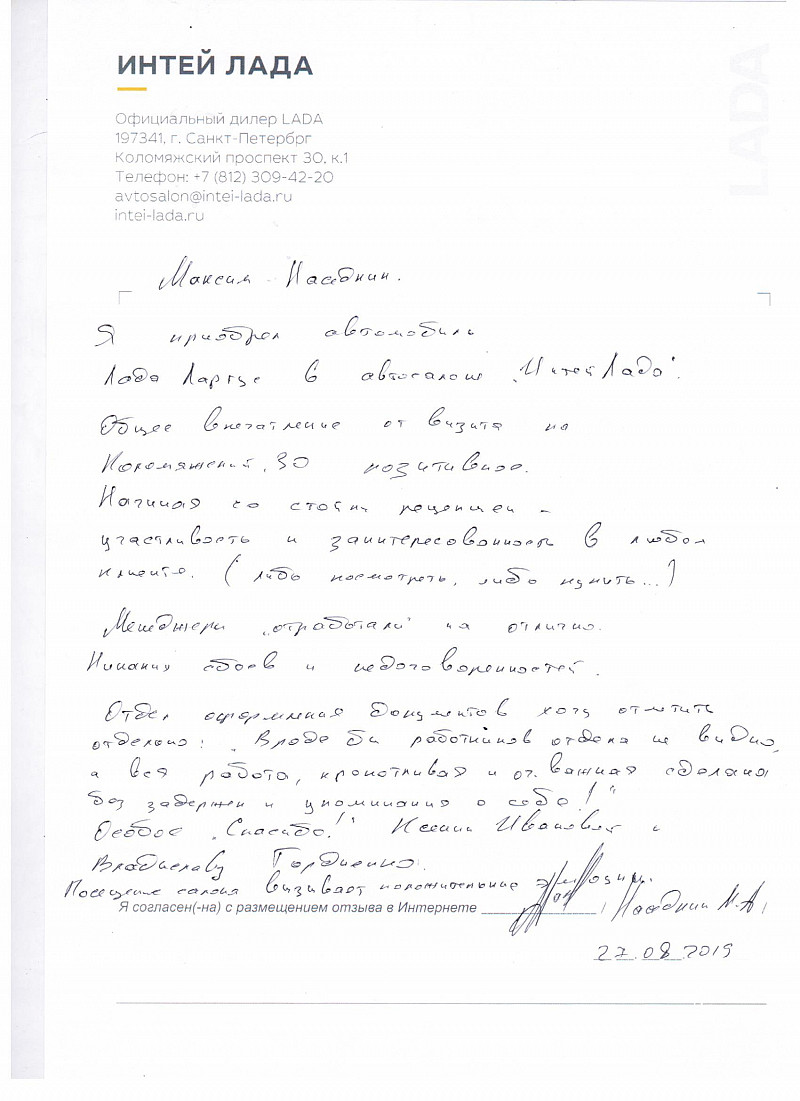 ИНТЕЙ ЛАДА
LADA
Официальный дилер LADA
197341, г. Санкт-Петербрг
Коломяжский проспект 30, к.1
Телефон: +7 (812) 309-42-20
avtosalon@intei-lada.ru
intei-lada.ru
Максим Наседкин.
Я приобрел автомобиль
Лада Ларгус в автосалоне „Интей Лада".
Общее впечатление от визита на
Коломяжский, 30 позитивное.
Начиная со стойки рецепшен -
участливость и заинтересованность в любом
клиенте. (либо посмотреть, либо купить...)
Менеджеры „отработали" на отлично.
Никаких сбоев и недоговоренностей.
Отдел оформления документов хочу отметить
отдельно: „Вроде бы работников отдела не видно,
а вся работа, кропотливая и оч. важная сделана
без задержек и упоминания о себе!"
Особое „Спасибо!" Ксении Ивановой и
Владиславу Гордиенко.
Посещение салона вызывает положительные эмоции.
Я согласен(-на) с размещением отзыва в Интернете / Наседкин М.А /
27.08.2019